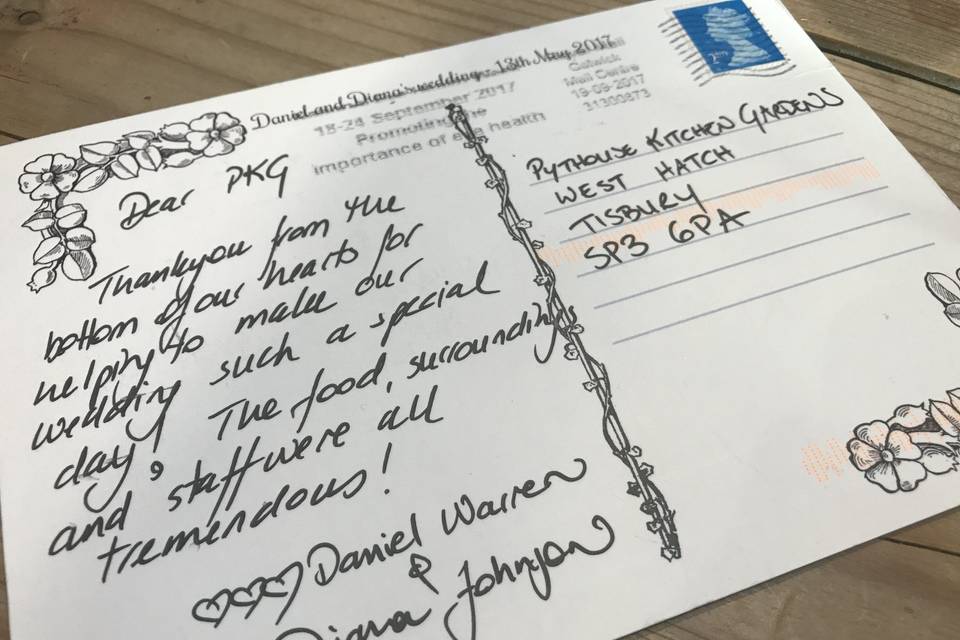 Daniel and Diana's wedding - 13th May 2017
18-24 September 2017
Promoting the
importance of health
Gatwick
Mail Centre
19-09-2017
31300873
Dear PKG
Thankyou from the
bottom of our hearts for
helping to make our
wedding such a special
day! The food, surroundings
and staff were all
tremendous!
Daniel Warren
&
Diana Johnson
PYTHOUSE KITCHEN GARDENS
WEST HATCH
TISBURY
SP3 6PA